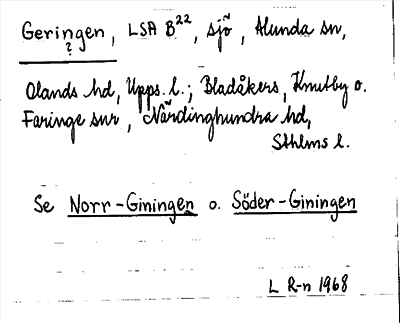 Geringen, LSA B²², sjö, Alunda sn,
?
Olands hd, Upps. l.; Bladåkers, Knutby o.
Faringe snr, Närdinghundra hd,
Sthlms l.
Se Norr-Giningen o. Söder-Giningen
L R-n 1968